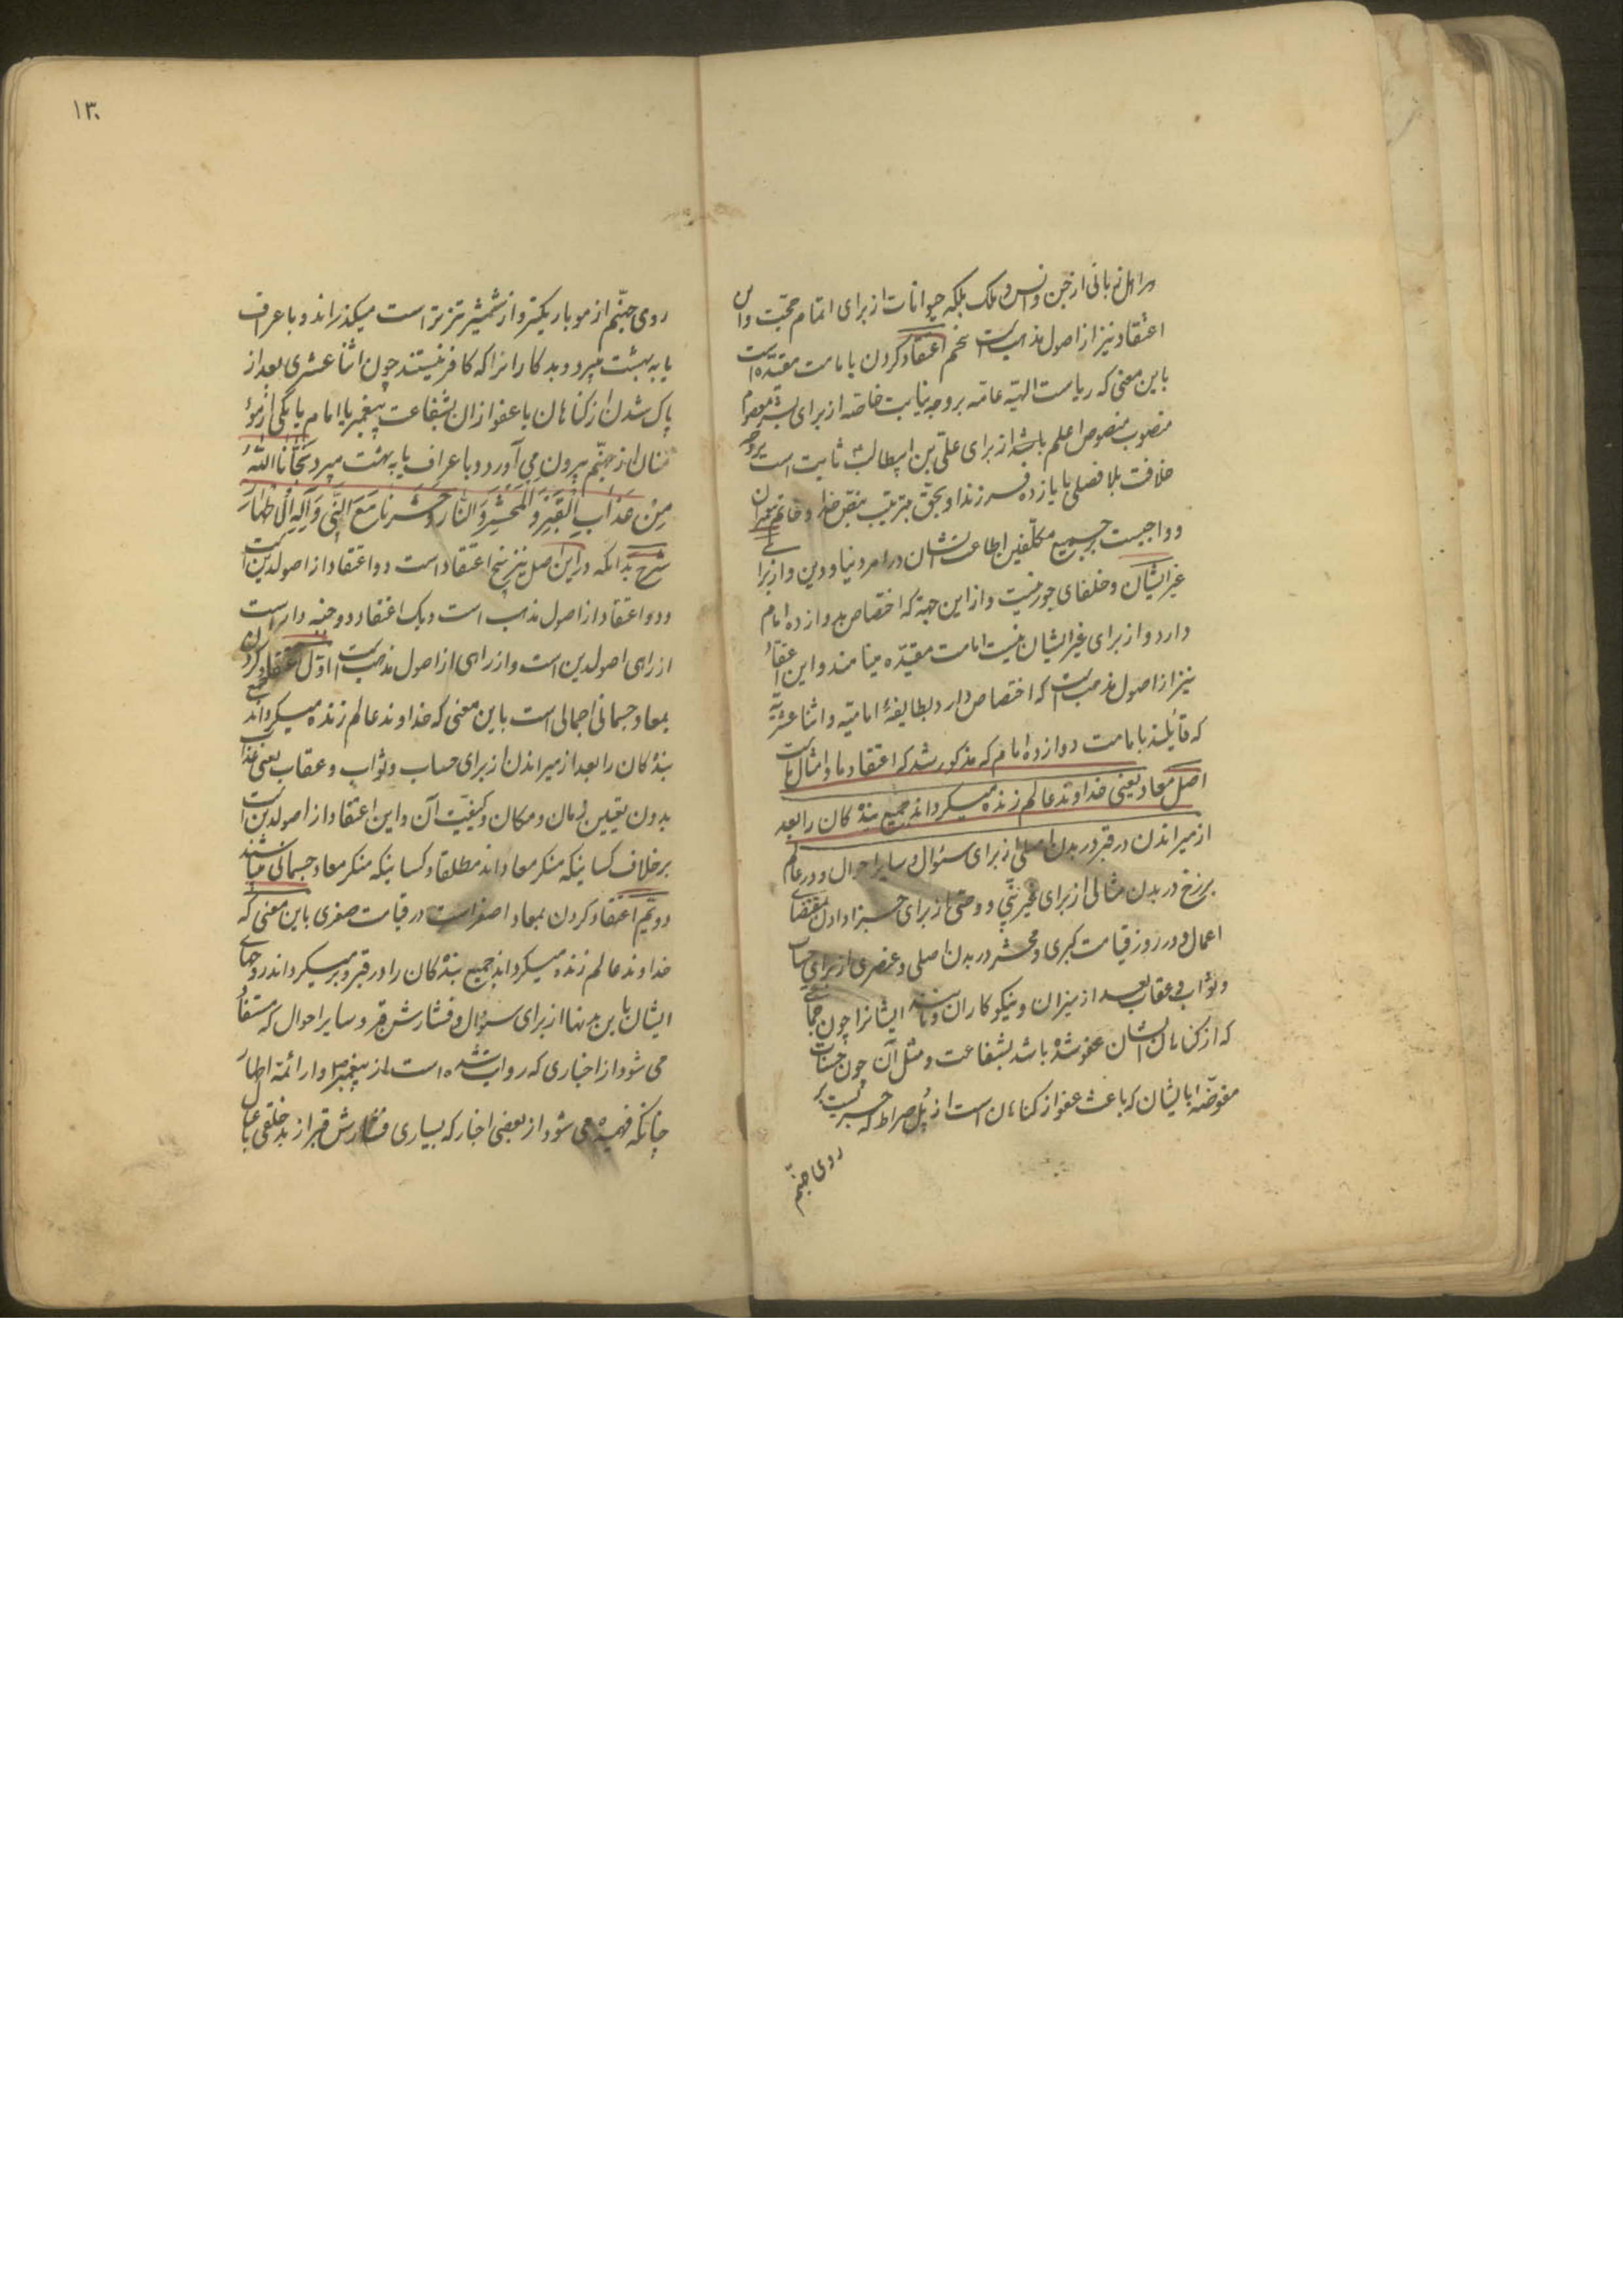 هر اهل زبانی از جن و انس و ملک بلکه حیوانات از برای اتمام حجّت و این
اعتقاد نیز از اصول مذهب است پنجم اعتقاد کردن بامامت مقیّده است
باین معنی که ریاست الهیّه عامّه بر وجه نیابت خاصّه از برای بشر معصوم
منصوب منصوص اعلم باشد از برای علیّ بن ابیطالب ثابت است بر وجه
خلافت بلا فصلی با یازده فرزند او بحقّ بترتیب بنصّ خدا و خاتم پیغمبران
و واجبست بر جمیع مکلّفین اطاعت ایشان در امر دنیا و دین و از برای
غیر ایشان و خلفای جور نیست و از این جهة که اختصاص بدوازده امام
دارد و از برای غیر ایشان نیست امامت مقیّده مینامند و این اعتقاد
نیز از اصول مذهب است که اختصاص دارد بطایفهٔ امامیّه و اثنا عشریّه
که قایلند بامامت دوازده امام که مذکور شد که اعتقاد ما و امثال ماست
اصل معاد یعنی خداوند عالم زنده میگرداند جمیع بندگان را بعد
از میراندن در قبر در بدن اصلی از برای سئوال و سایر احوال و در عالم
برزخ در بدن مثالی از برای غیر نبی و وصی از برای جزا دادن بمقتضای
اعمال و در روز قیامت کبری و محشر در بدن اصلی و عنصری از برای حساب
و ثواب و عقاب بعد از میزان و نیکوکاران و مانند ایشانرا چون جماعتی
که از گناهان ایشان عفو شده باشد بشفاعت و مثل آن چون حسنات
مفوّضه بایشان که باعث عفو از گناهان است از پُل صراط که جسریست بر
روی جهنّم
۱۳۰
روی جهنّم از مو باریکتر و از شمشیر تیزتر است میگذراند و باعراف
یا به بهشت میبرد و بدکارانرا که کافر نیستند چون اثنا عشری بعد از
پاک شدن از گناهان یا عفو از ان بشفاعت پیغمبر یا امام یا یکی از مؤ
منان از جهنّم بیرون می آورد و باعراف یا به بهشت میبرد نَجَّانَا اللّٰهُ
مِنْ عَذَابِ الْقَبْرِ وَ الْمَحْشَرِ وَ النَّارِ وَ حَشَرَنَا مَعَ النَّبِیِّ وَ آلِهِ الْاَطْهَارِ
شرح بدانکه در این اصل نیز پنج اعتقاد است دو اعتقاد از اصولدین است
و دو اعتقاد از اصول مذهب است و یک اعتقاد دو جنبه دار است
از راهی اصولدین است و از راهی از اصول مذهب است اوّل اعتقاد کردن
بمعاد جسمانی اجمالی است باین معنی که خداوند عالم زنده میگرداند جمیع
بندگان را بعد از میراندن از برای حساب و ثواب و عقاب یعنی عذاب
بدون تعیین زمان و مکان و کیفیّت آن و این اعتقاد از اصولدین است
برخلاف کسانیکه منکر معاد اند مطلقا و کسانیکه منکر معاد جسمانی میباشند
دویّم اعتقاد کردن بمعاد اصغر است در قیامت صغری باین معنی که
خداوند عالم زنده میگرداند جمیع بندگان را در قبر و برمیگرداند روحهای
ایشان باین بدنها از برای سئوال و فشارش قبر و سایر احوال که مستفاد
می شود از اخباری که روایت شده است از پیغمبر و از ائمّه اطهار
چنانکه فهمیده می شود از بعضی اخبار که بسیاری فشارش قبر از بدخلقی با عیال